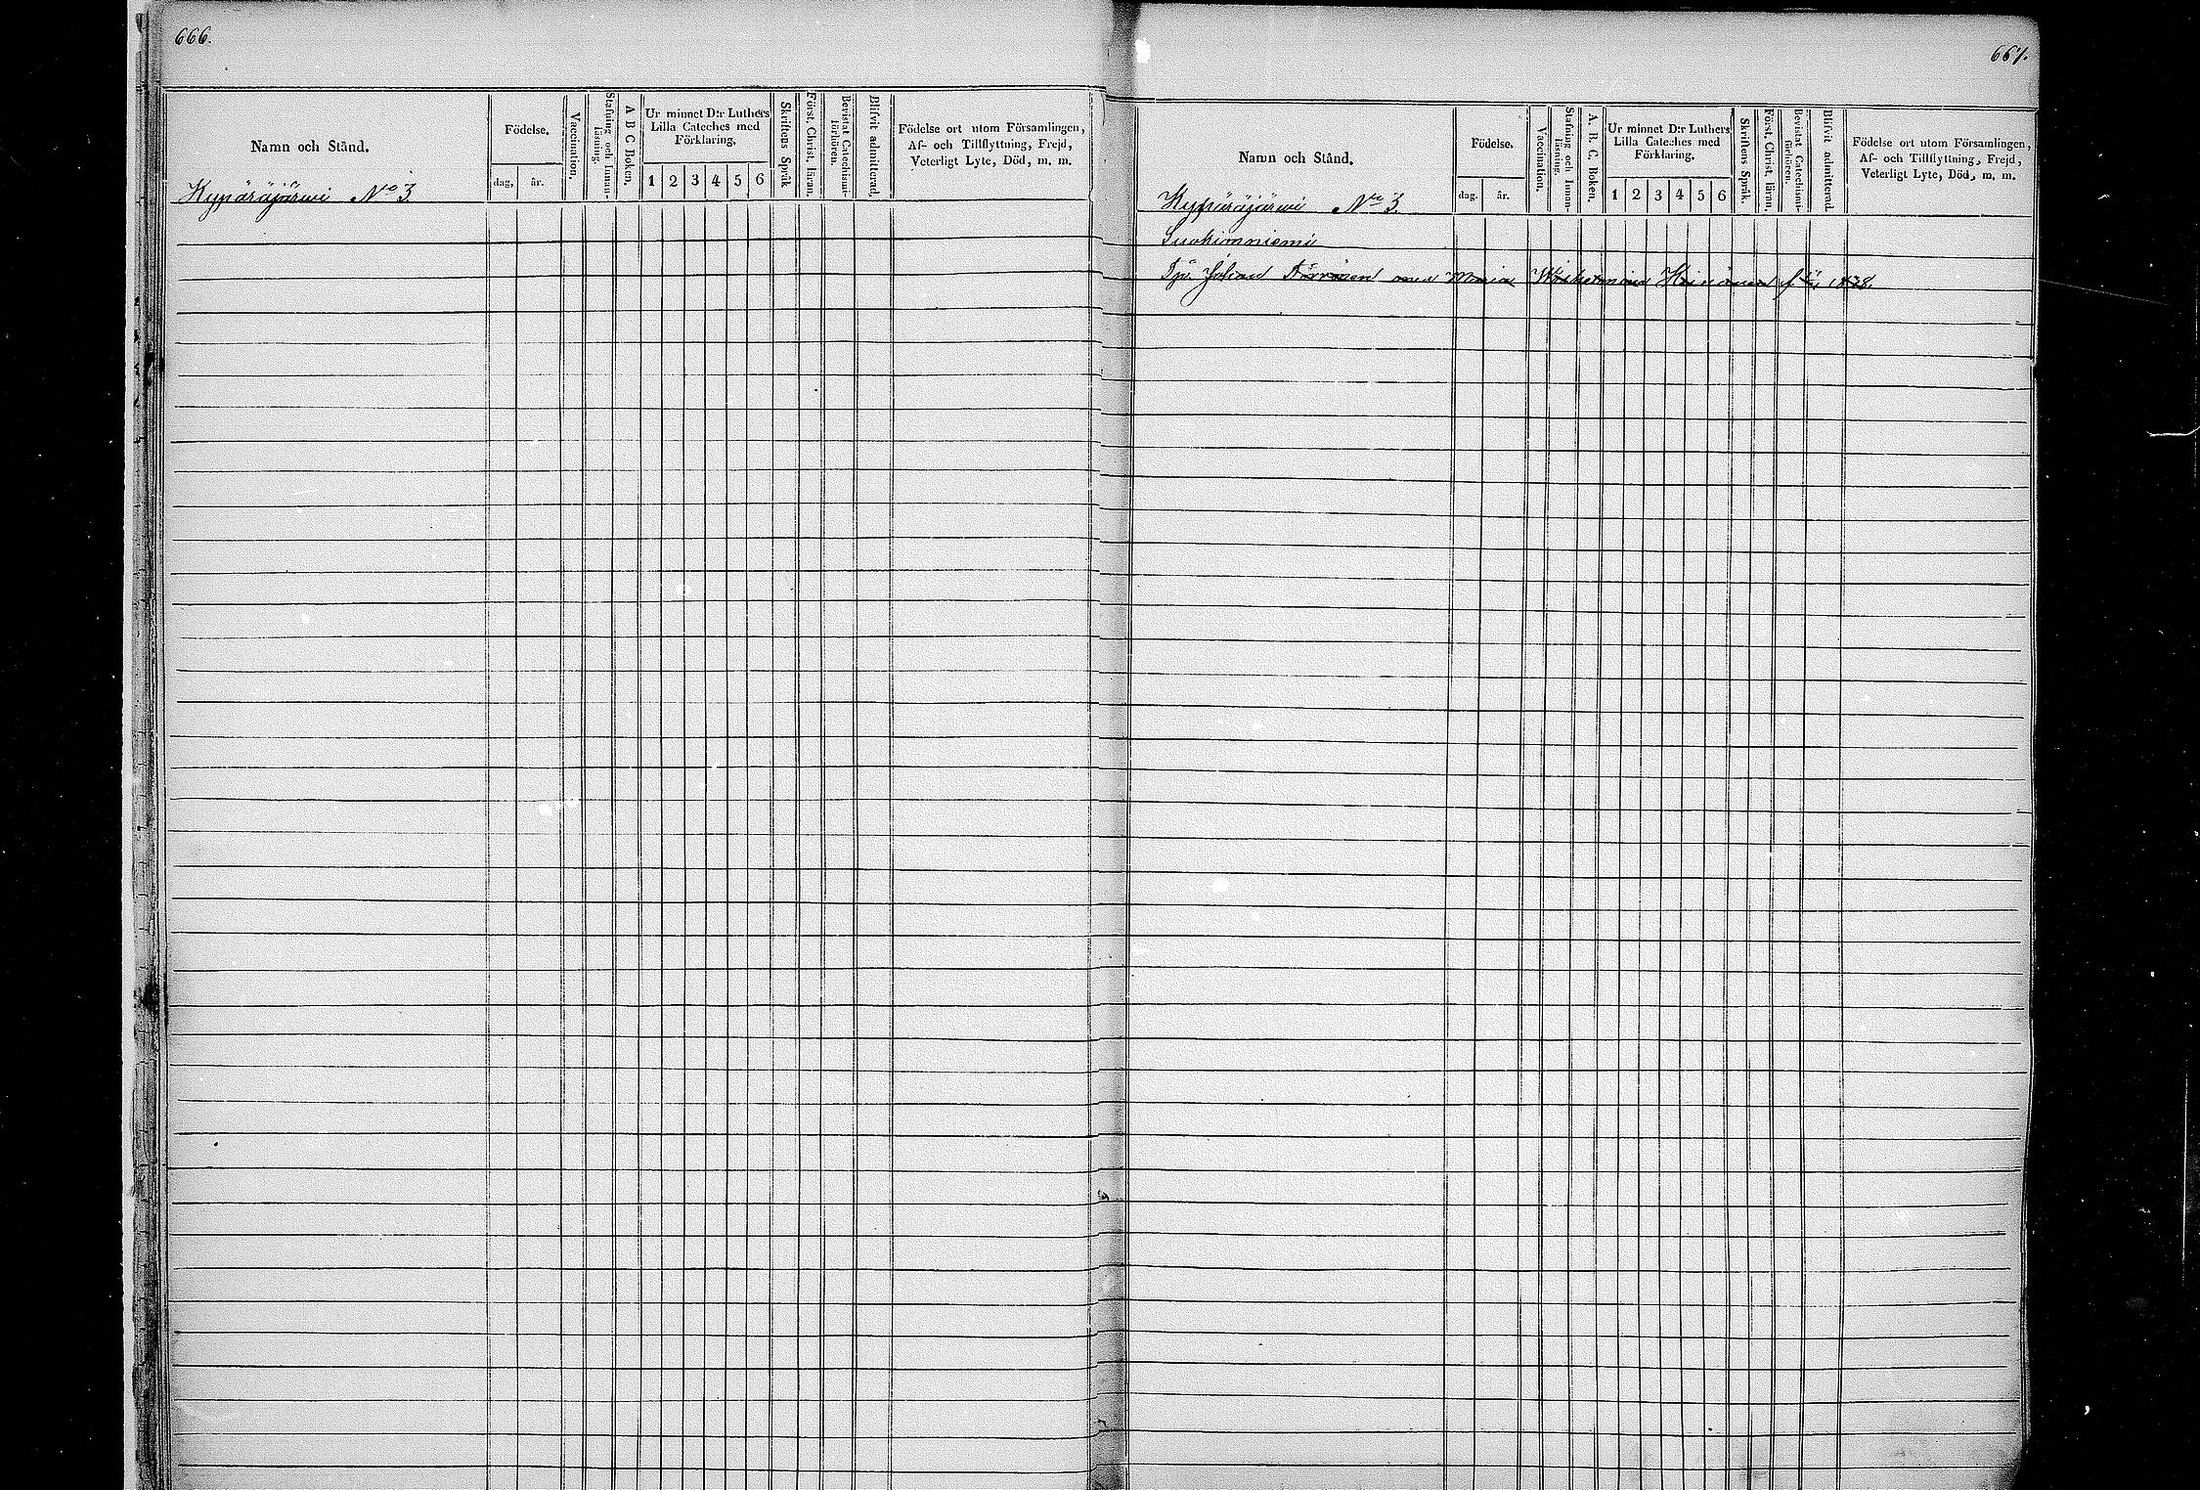 666.
Namn och Stånd.
Födelse.
dag,
år.
Vaccination.
Stafning och Innan-
läsning.
A B C Boken.
Ur minnet D:r Luthers
Lilla Cateches med
Förklaring.
1 2 3 4 5 6
Skriftens Språk
Först. Christ. läran.
Bevistat Catechismi-
förhören.
Blifvit admitterad.
Födelse ort utom Församlingen,
Af- och Tillflyttning, Frejd,
Veterligt Lyte, Död, m. m.
Kypäräjärwi No 3.
667.
Namn och Stånd.
Födelse.
dag.
år.
Vaccination.
Stafning och Innan-
läsning.
A. B. C. Boken.
Ur minnet D:r Luthers
Lilla Cateches med
Förklaring.
1 2 3 4 5 6
Skriftens Språk.
Först. Christ. läran.
Bevistat Catechismi-
förhören.
Blifvit admitterad.
Födelse ort utom Församlingen,
Af- och Tillflyttning, Frejd,
Veterligt Lyte, Död, m. m.
Kypäräjärwi No 3.
Johan Maria 1838.